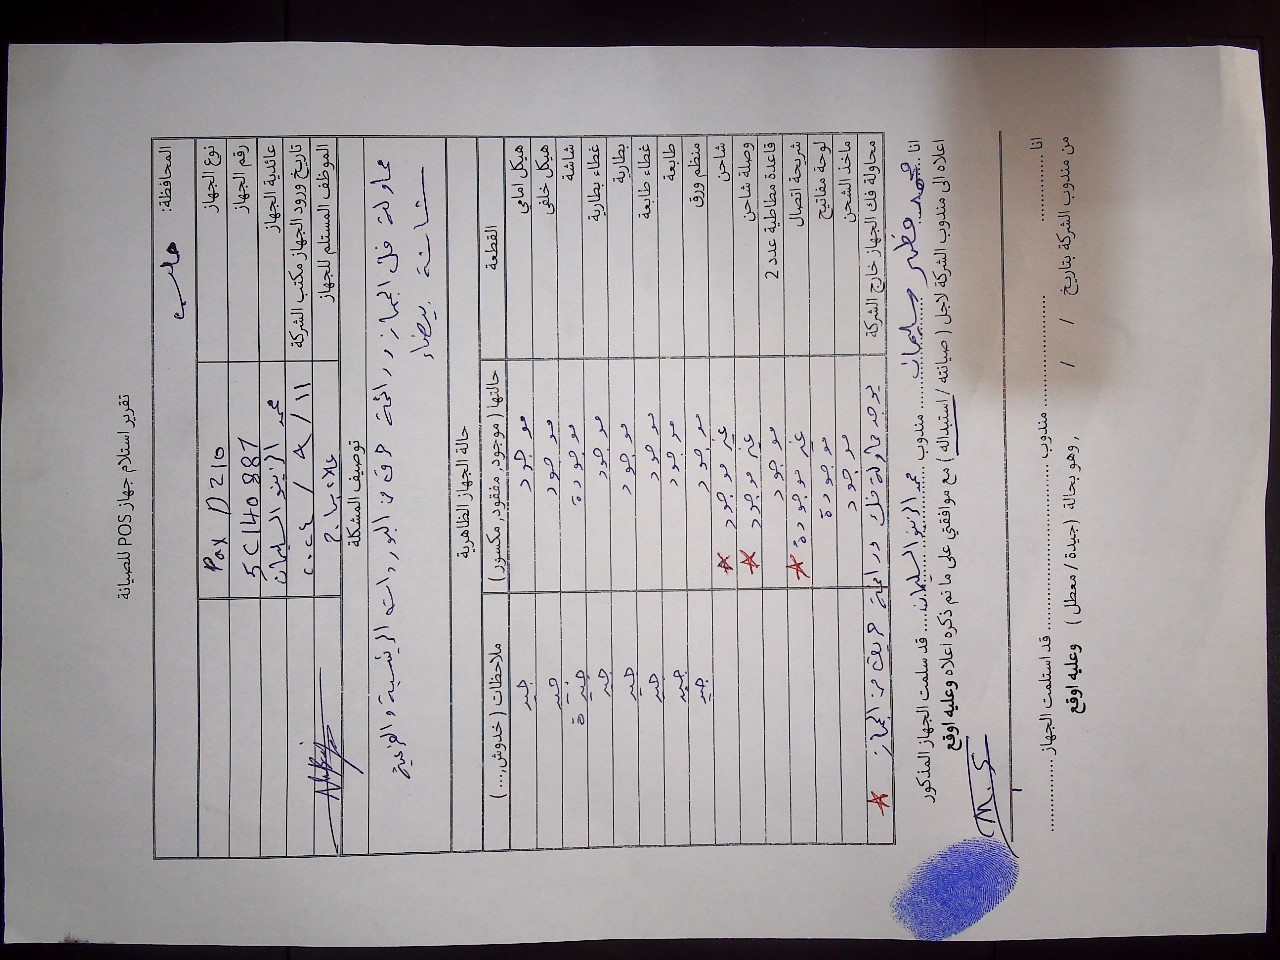 تقرير استلام جهاز POS للصيانة
المحافظة: حلب
نوع الجهاز Pax D210
رقم الجهاز 5C140887
عائدية الجهاز محمد الزينو السليمان
تاريخ ورود الجهاز مكتب الشركة ١١ / ٩ / ٢٠٢٤
الموظف المستلم للجهاز علاء
توصيف المشكلة
محاولة فك الجهاز ورائحة حرق من البوردات الرئيسية والفرعية
شاشة بيضاء
حالة الجهاز الظاهرية
القطعة حالتها ( موجود, مفقود, مكسور ) ملاحظات ( خدوش,... )
هيكل امامي موجود جيد
هيكل خلفي موجود جيد
شاشة موجودة جيدة
غطاء بطارية موجود جيد
بطارية موجود جيد
غطاء طابعة موجود جيد
طابعة موجود جيد
منظم ورق موجود جيد
شاحن غير موجود
وصلة شاحن غير موجود
قاعدة مطاطية عدد 2 موجود
شريحة اتصال غير موجودة
لوحة مفاتيح موجودة
ماخذ الشحن موجود
محاولة فك الجهاز خارج الشركة يوجد محاولة فك ورائحة حريق من الجهاز
انا محمد مظهر سليمان مندوب محمد الزينو السليمان قد سلمت الجهاز المذكور
اعلاه الى مندوب الشركة لاجل ( صيانته / استبداله ) مع موافقتي على ما تم ذكره اعلاه وعليه اوقع
M.S
انا .............. ...................... مندوب ................................. قد استلمت الجهاز ...............
من مندوب الشركة بتاريخ / / , وهو بحالة (جيدة / معطل ) وعليه اوقع